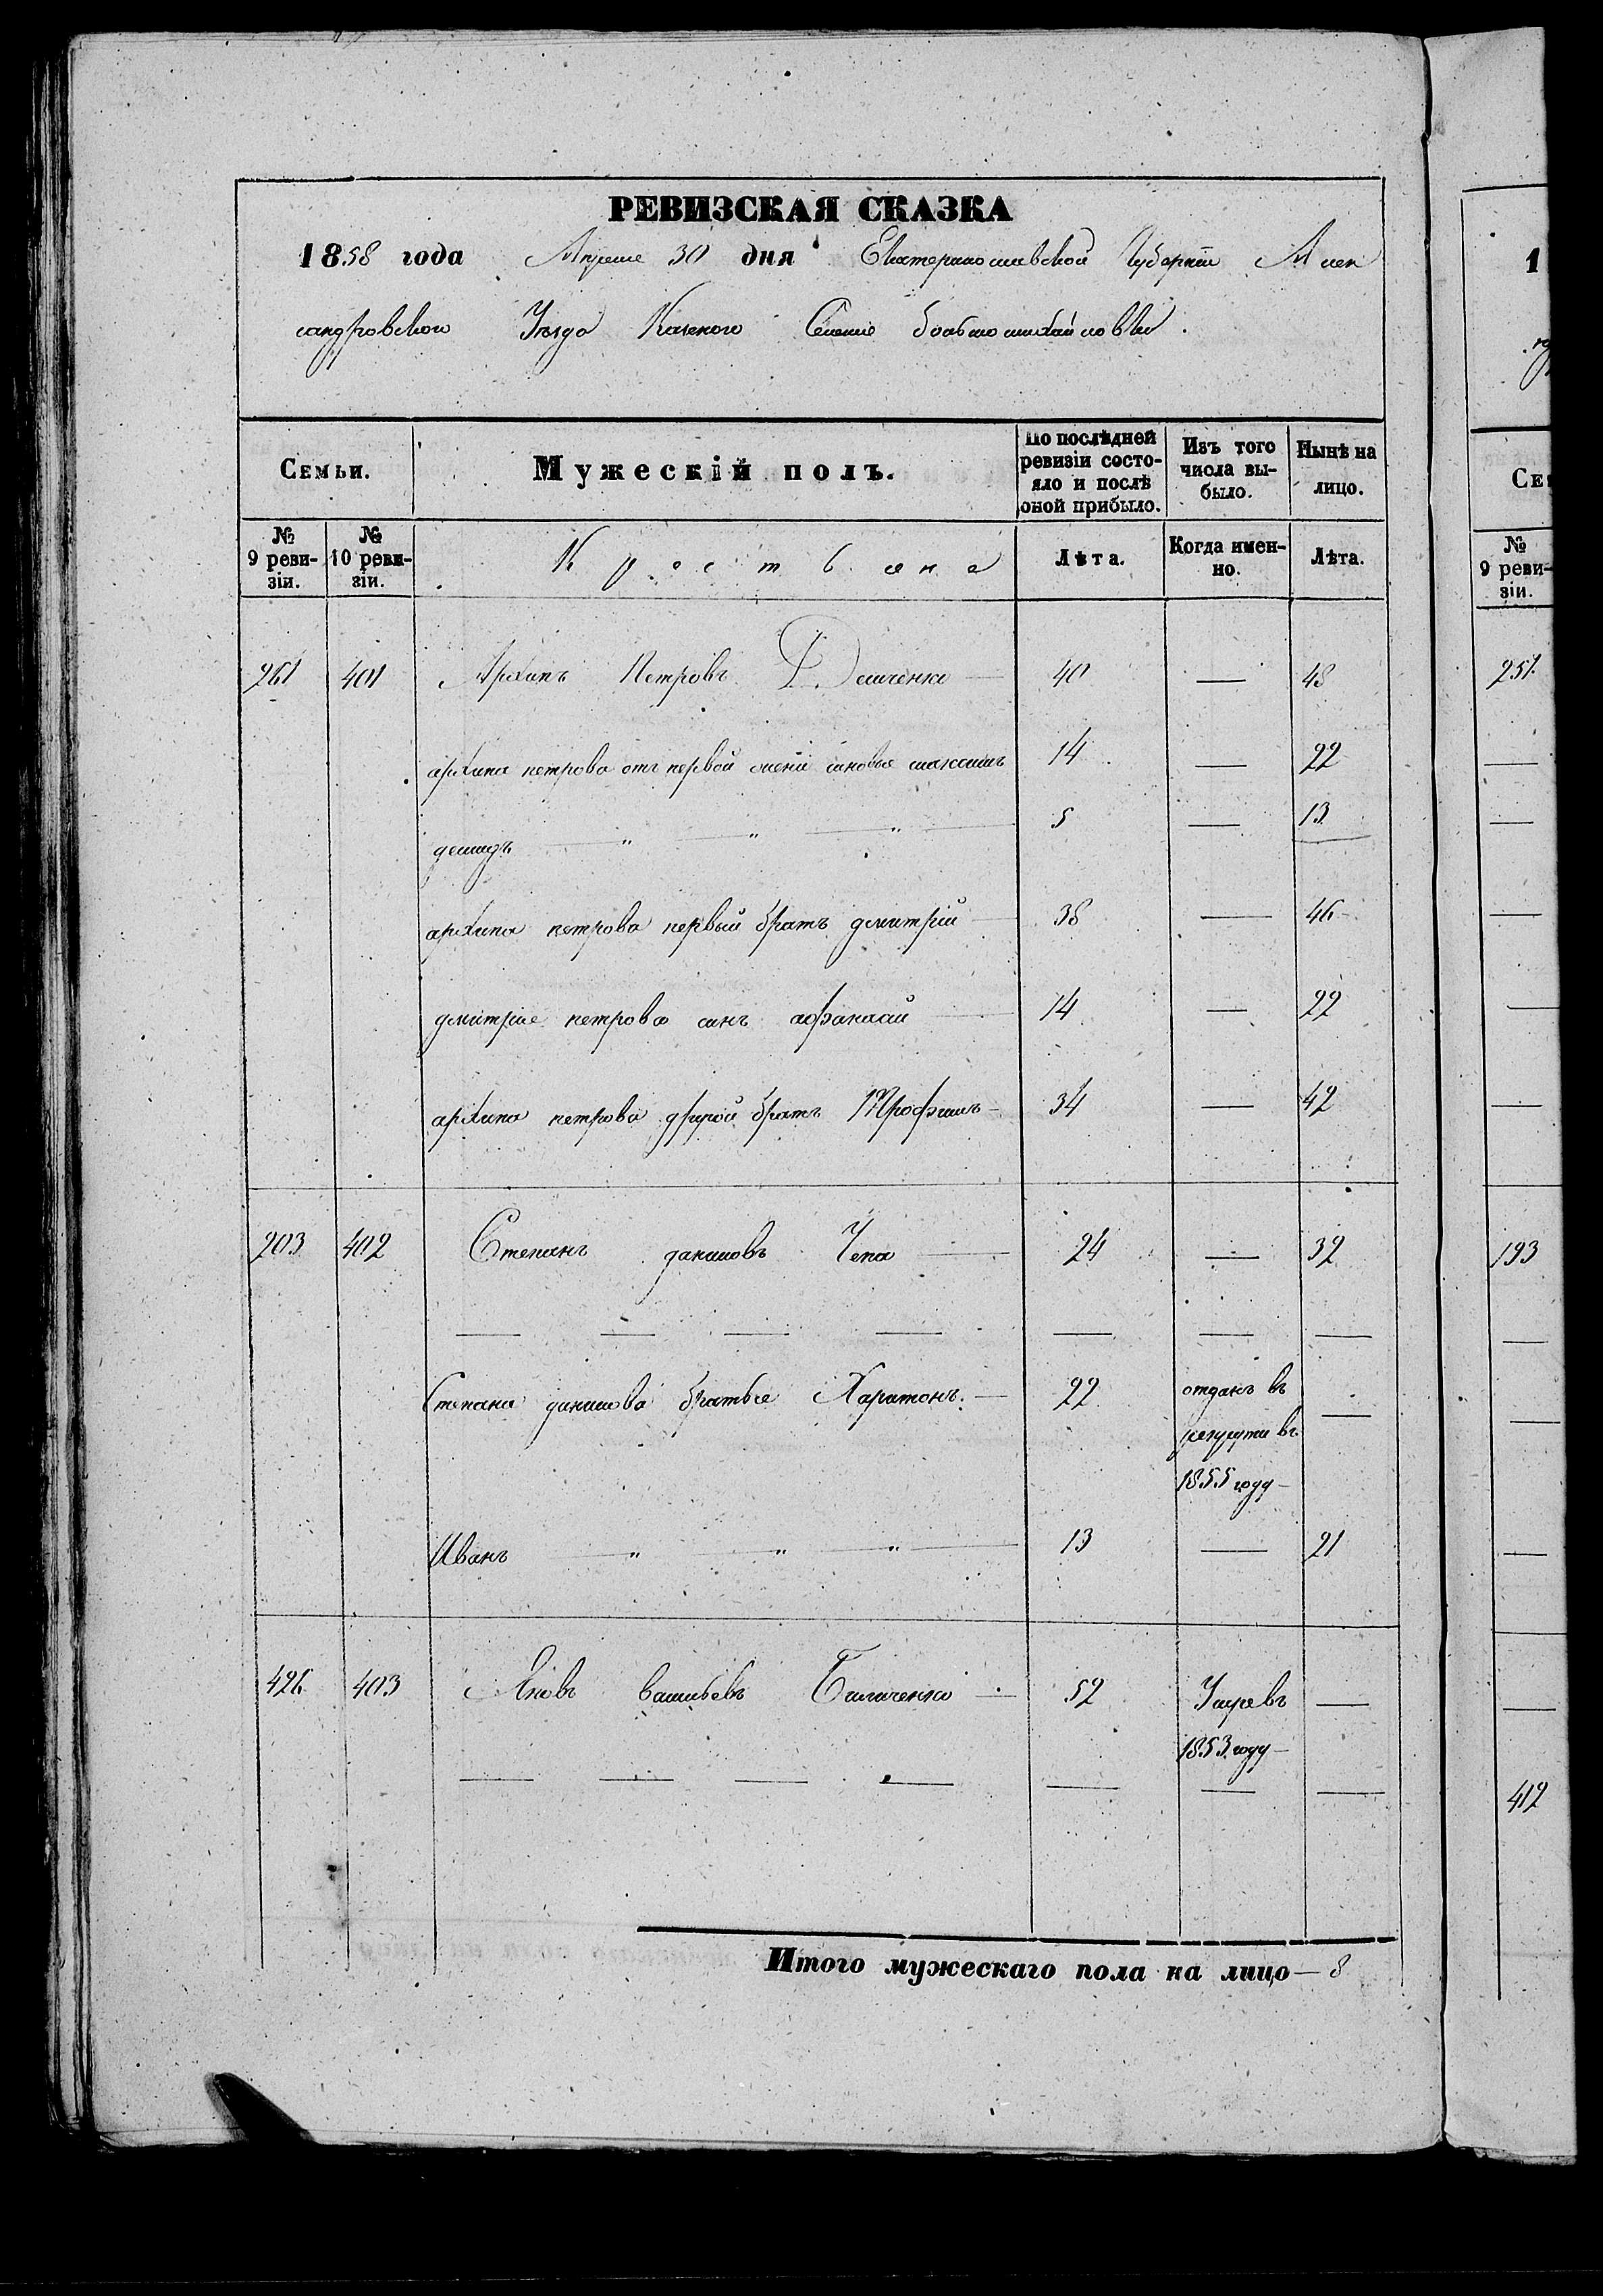 РЕВИЗСКАЯ СКАЗКА
1858 года Апреля 30 дня Екатеринославской Губернии Алек
сандровского Уезда Казеного Селения большомихайловки
Семьи. Мужескій полъ. По послѣдней ревизіи состояло и послѣ оной прибыло. Изъ того числа выбыло. Нынѣ на лицо.
№ 9 ревизіи. № 10 ревизіи. Крестьяне Лѣта. Когда именно. Лѣта.
261 401 Архипъ Петровъ 40 — 48
архипа петрова отъ первой жены сыновья максимъ 14 — 22
демидъ " " " 5 — 13
архипа петрова первый братъ дмитрій 38 — 46
дмитрия петрова синъ афанасий 14 — 22
архипа петрова другой братъ Трофимъ 34 — 42
203 402 Степанъ даниловъ Чепа 24 — 32
— — — — — — —
Степана данилова братья Харитонъ 22 отданъ въ —
рекруты въ
1855 году
Иванъ " " " 13 — 21
426 403 Яковъ васильевъ Биличенко 52 Умре въ —
1853 году
— — — — — — —
Итого мужескаго пола на лицо — 8
1
Се
№
9 реви-
зіи.
251
—
—
—
—
—
193
—
—
—
—
412